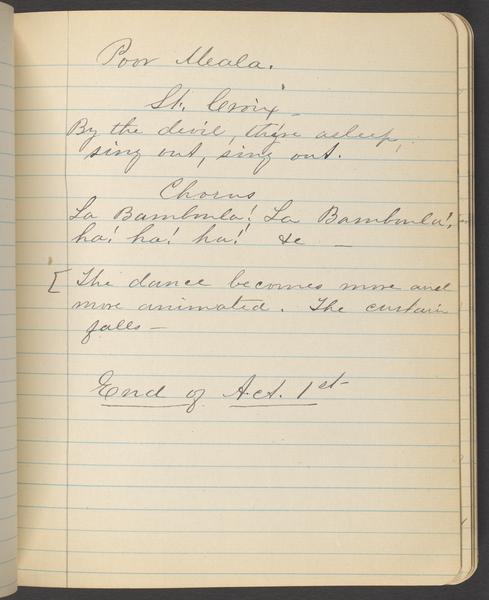 Poor Meala.
St. Croix –
By the devil, they're asleep,
sing out, sing out.
Chorus
La Bamboula! La Bamboula!,
ha! ha! ha! &c –
[ The dance becomes more and
more animated. The curtain
falls –
End of Act. 1st